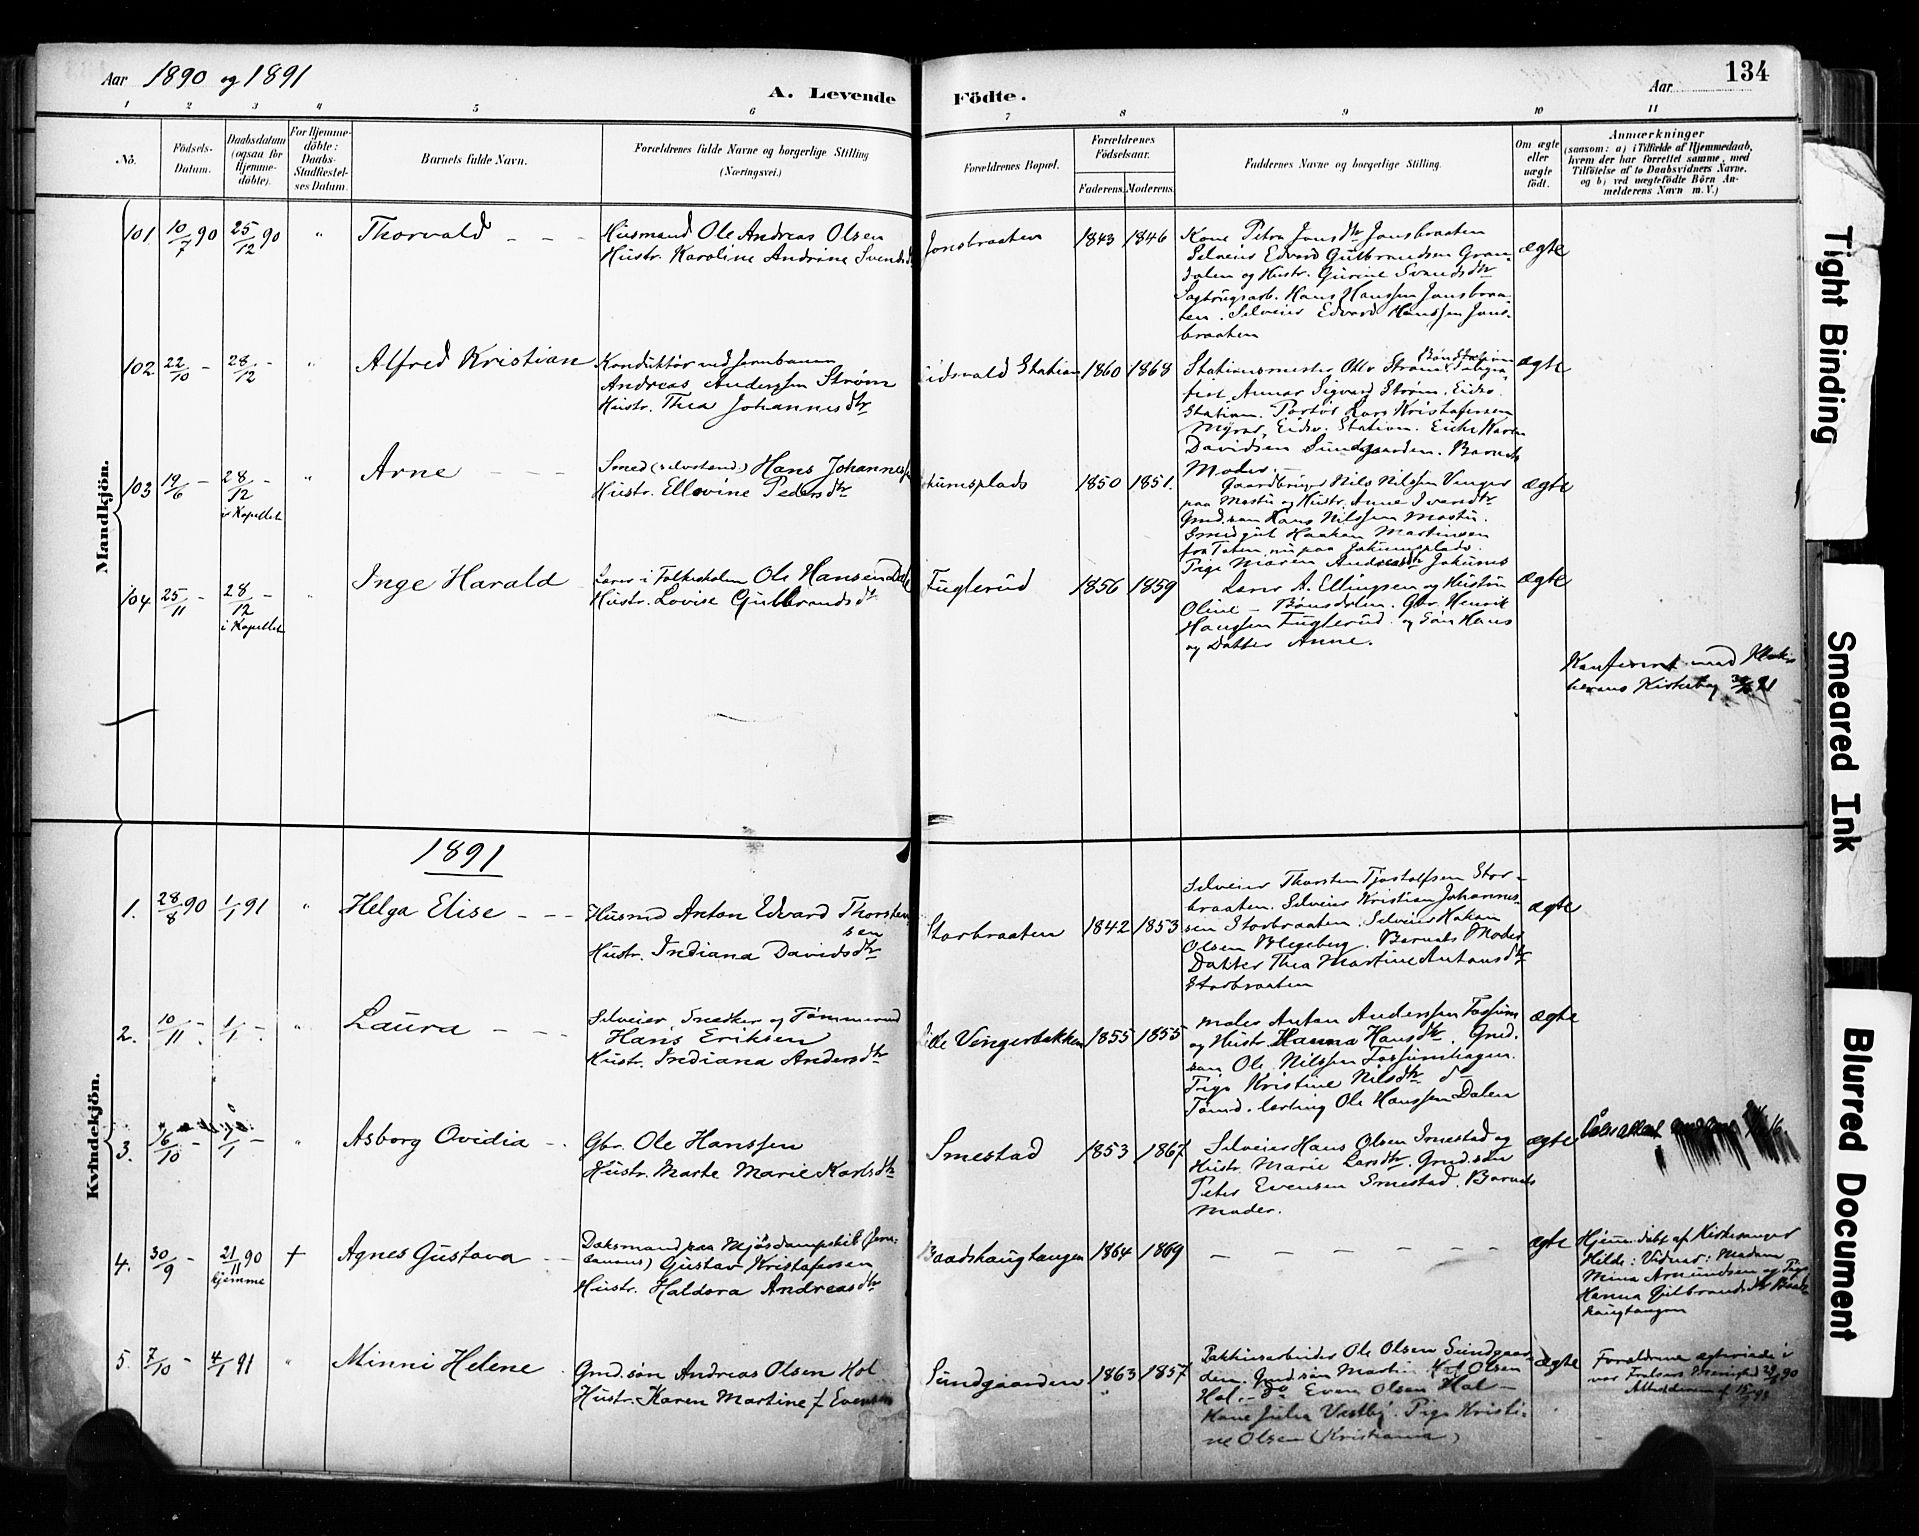 Aar 1890 og 1891
A. Levende Födte.
Aar
134
1 2 3 4 5 6 7 8 9 10 11
No.
Födsels-
Datum.
Daabsdatum
(ogsaa for
Hjemme-
döbte).
For Hjemme-
döbte:
Daabs-
Stadfæstel-
ses Datum.
Barnets fulde Navn.
Forældrenes fulde Navne og borgerlige Stilling
(Næringsvei.)
Forældrenes Bopæl.
Forældrenes
Födselsaar.
Faderens. Moderens.
Faddernes Navne og borgerlige Stilling.
Om ægte
eller
uægte
födt.
Anmærkninger
(saasom: a) i Tilfælde af Hjemmedaab,
hvem der har forrettet samme, med
Tilföielse af to Daabsvidners Navne.
og b) ved uægtefödte Börn An-
melderens Navn m. V.)
Mandkjön.
101 10/7 90 25/12 90 " Thorvald
Husmand Ole Andreas Olsen
Hustr. Karoline Andrine Svendsdtr
Jonsbraaten 1843 1846
Kone Petra Jansdtr Jansbraaten
Selveier Edvard Gulbrandsen Gran-
dalen og Hustr. Gurine Svendsdtr
Sagbrugsarb. Hans Hanssen Jansbraa-
ten. Selveier Edvard Hanssen Jans-
braaten
ægte
102 22/10 - 28/12 - " Alfred Kristian
Konduktör ved Jernbanen
Andreas Anderssen Ström
Hustr. Thea Johannesdtr
Eidsvold Station 1860 1868
Stationsmester Otto Ström
fist Annar Sigvard Ström, Eidsv.
Station. Portör Lars Kristofersen
Myrer, Eidsv. Station. Enke Karen
Davidsen Sundgaarden. Barnets
Moder.
ægte
103 19/6 - 28/12 - i Kapellet " Arne
Smed (selvstænd.) Hans Johannessen
Hustr. Ellevine Pedersdtr
Jokumsplads 1850 1851.
Gaardbruger Nils Nilssen Venger
paa Mostu og Hustr. Anne Iversdtr
Gmd. søn Hans Nilssen Mostu.
Smedgut Haakon Martinsen
fra Toten, nu paa Jokumsplads.
Pige Maren Andreasdtr Jokums
ægte
104 25/11 - 28/12 - i Kapellet " Inge Harald
Lærer i Folkeskolen Ole Hansen Dahl
Hustr. Lovise Gulbrandsdtr
Fuglerud 1856 1859
Lærer A. Ellingsen og Hustru
Oline - Bönsdalen. Gbr. Henrik
Hanssen Fuglerud og Sön Hans
og Datter Anne.
ægte
Konfereret med Klok-
kerens Kirkebog 91
Kvindekjön.
1891
1. 28/8 90 1/1 91 " Helga Elise
Husmd Anton Edvard Thorsten-
sen
Hustr. Indiana Davidsdtr
Storbraaten 1842 1853
Selveier Thorsten Tjostolfsen Stor-
braaten. Selveier Kristian Johannes-
sen Storbraaten. Selveier Hakon
Olsen Blegeberg. Barnets Moder
Datter Thea Martine Antonsdtr
Storbraaten
ægte
2. 10/11 - 1/1 - " Laura
Selveier, Snedker og Tömmermd
Hans Eriksen
Hustr. Indiana Andersdtr
Lille Vengerbakken 1855 1855
Maler Anton Anderssen Fossum
og Hustr. Hanna Hansdtr. Gmd.
søn Ole Nilssen Fossumhagen.
Pige Kristine Nilsdtr do
Tömd. lærling Ole Hanssen Dalen
ægte
3. 16/10 - 1/1 - " Asborg Ovidia
Gbr. Ole Hanssen
Hustr. Marte Marie Karlsdtr
Smestad 1853 1867
Selveier Hans Olsen Smestad og
Hustr. Marie Larsdtr. Gmd. søn
Peter Evensen Smestad. Barnets
Moder.
ægte
4. 30/9 - 21/11 90 hjemme + Agnes Gustava
Dæksmand paa Mjösdampskib (Jern-
banens) Gustav Kristofersen
Hustr. Haldora Andreasdtr
Baadshaugtangen 1864 1869
ægte
Hjemmedöbt af Kirkesanger
Hilde: Vidner: Madam
Mina Amundsen og Pige
Hanna Gulbrandsdtr Baads-
haugtangen
5. 7/10 - 4/1 91 " Minni Helene
Gmd. søn Andreas Olsen Hol
Hustr. Karen Martine f. Evensen
Sundgaarden 1863 1857
Pakhusarbeider Ole Olsen Sundgaar-
den. Gmd søn Martin Olsen
Hol. - do Even Olsen Hol -
Kone Julia Vestby. Pige Kristi-
ne Olsen (Kristiania)
ægte
Forældrene ægteviede i
90
Tight Binding
Smeared Ink
Blurred Document